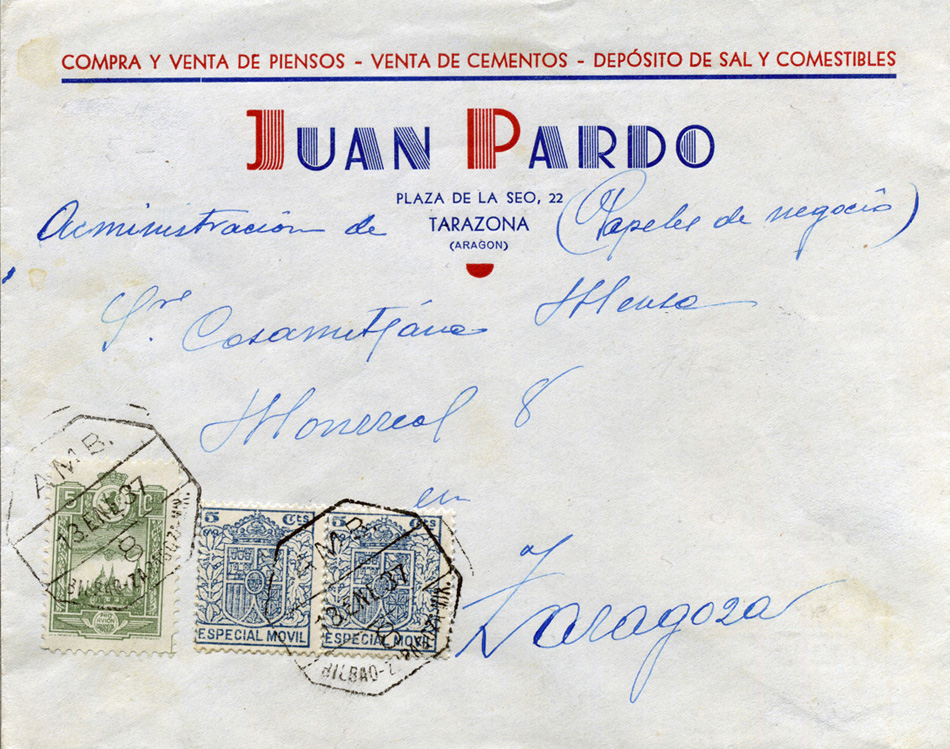 COMPRA Y VENTA DE PIENSOS - VENTA DE CEMENTOS - DEPÓSITO DE SAL Y COMESTIBLES
JUAN PARDO
PLAZA DE LA SEO, 22
TARAZONA
(ARAGÓN)
Administración de (Papeles de negocio)
Sre Casametjana
Monrreal 8
en
Zaragoza
A.M.B.
13 ENE. 37
BILBAO-ZARAGOZA
5 C
5 CTS
ESPECIAL MOVIL
5 CTS
ESPECIAL MOVIL
13 ENE. 37
BILBAO-ZARAGOZA